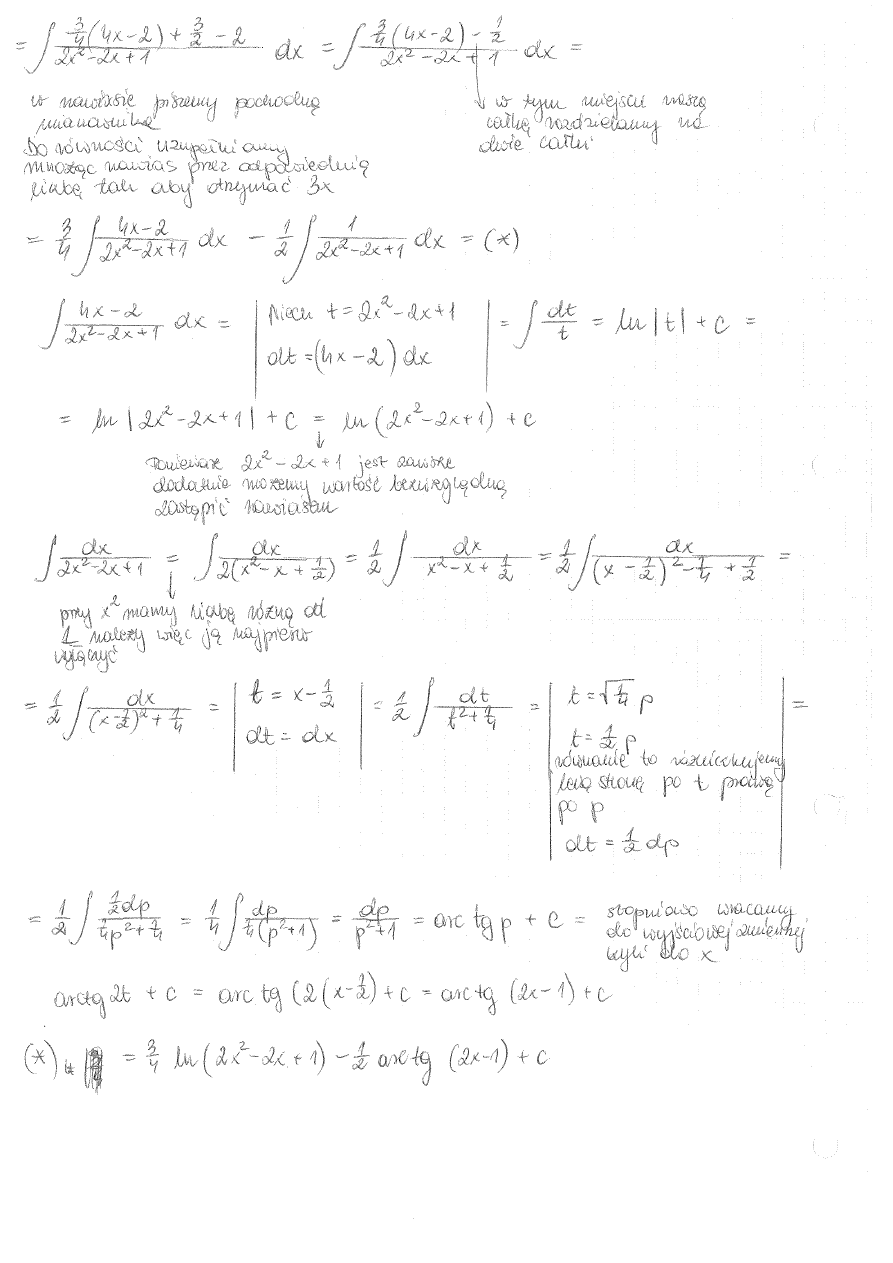 = ∫ (3/4(4x-2) + 3/2 - 2)/(2x²-2x+1) dx = ∫ (3/4(4x-2) - 1/2)/(2x²-2x+1) dx =
w nawiasie piszemy pochodną
mianownika
Do równości uzupełniamy
mnożąc nawias przez odpowiednią
liczbę tak aby otrzymać 3x
w tym miejscu naszą
całkę rozdzielamy na
dwie całki
= 3/4 ∫ (4x-2)/(2x²-2x+1) dx - 1/2 ∫ 1/(2x²-2x+1) dx = (*)
∫ (4x-2)/(2x²-2x+1) dx = | niech t = 2x²-2x+1
dt = (4x-2) dx | = ∫ dt/t = ln|t| + c =
= ln|2x²-2x+1| + c = ln(2x²-2x+1) + c
ponieważ 2x²-2x+1 jest zawsze
dodatnie możemy wartość bezwzględną
zastąpić nawiasem
∫ dx/(2x²-2x+1) = ∫ dx/(2(x²-x+1/2)) = 1/2 ∫ dx/(x²-x+1/2) = 1/2 ∫ dx/((x-1/2)²-1/4+1/2) =
przy x² mamy liczbę różną od
1 należy więc ją najpierw
wyłączyć
= 1/2 ∫ dx/((x-1/2)²+1/4) = | t = x-1/2
dt = dx | = 1/2 ∫ dt/(t²+1/4) = | t = √(1/4) p
t = 1/2 p
równanie to różniczkujemy
lewą stronę po t prawą
po p
dt = 1/2 dp | =
= 1/2 ∫ (1/2 dp)/(1/4p²+1/4) = 1/4 ∫ dp/(1/4(p²+1)) = dp/(p²+1) = arc tg p + c = stopniowo wracamy
do wyjściowej zmiennej
czyli do x
arctg 2t + c = arc tg (2(x-1/2) + c = arctg (2x-1) + c
(*) = 3/4 ln(2x²-2x+1) - 1/2 arctg (2x-1) + c